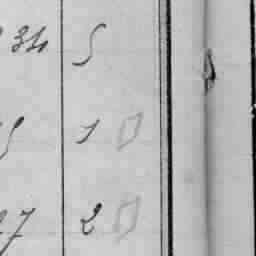 34 5
1
7 2